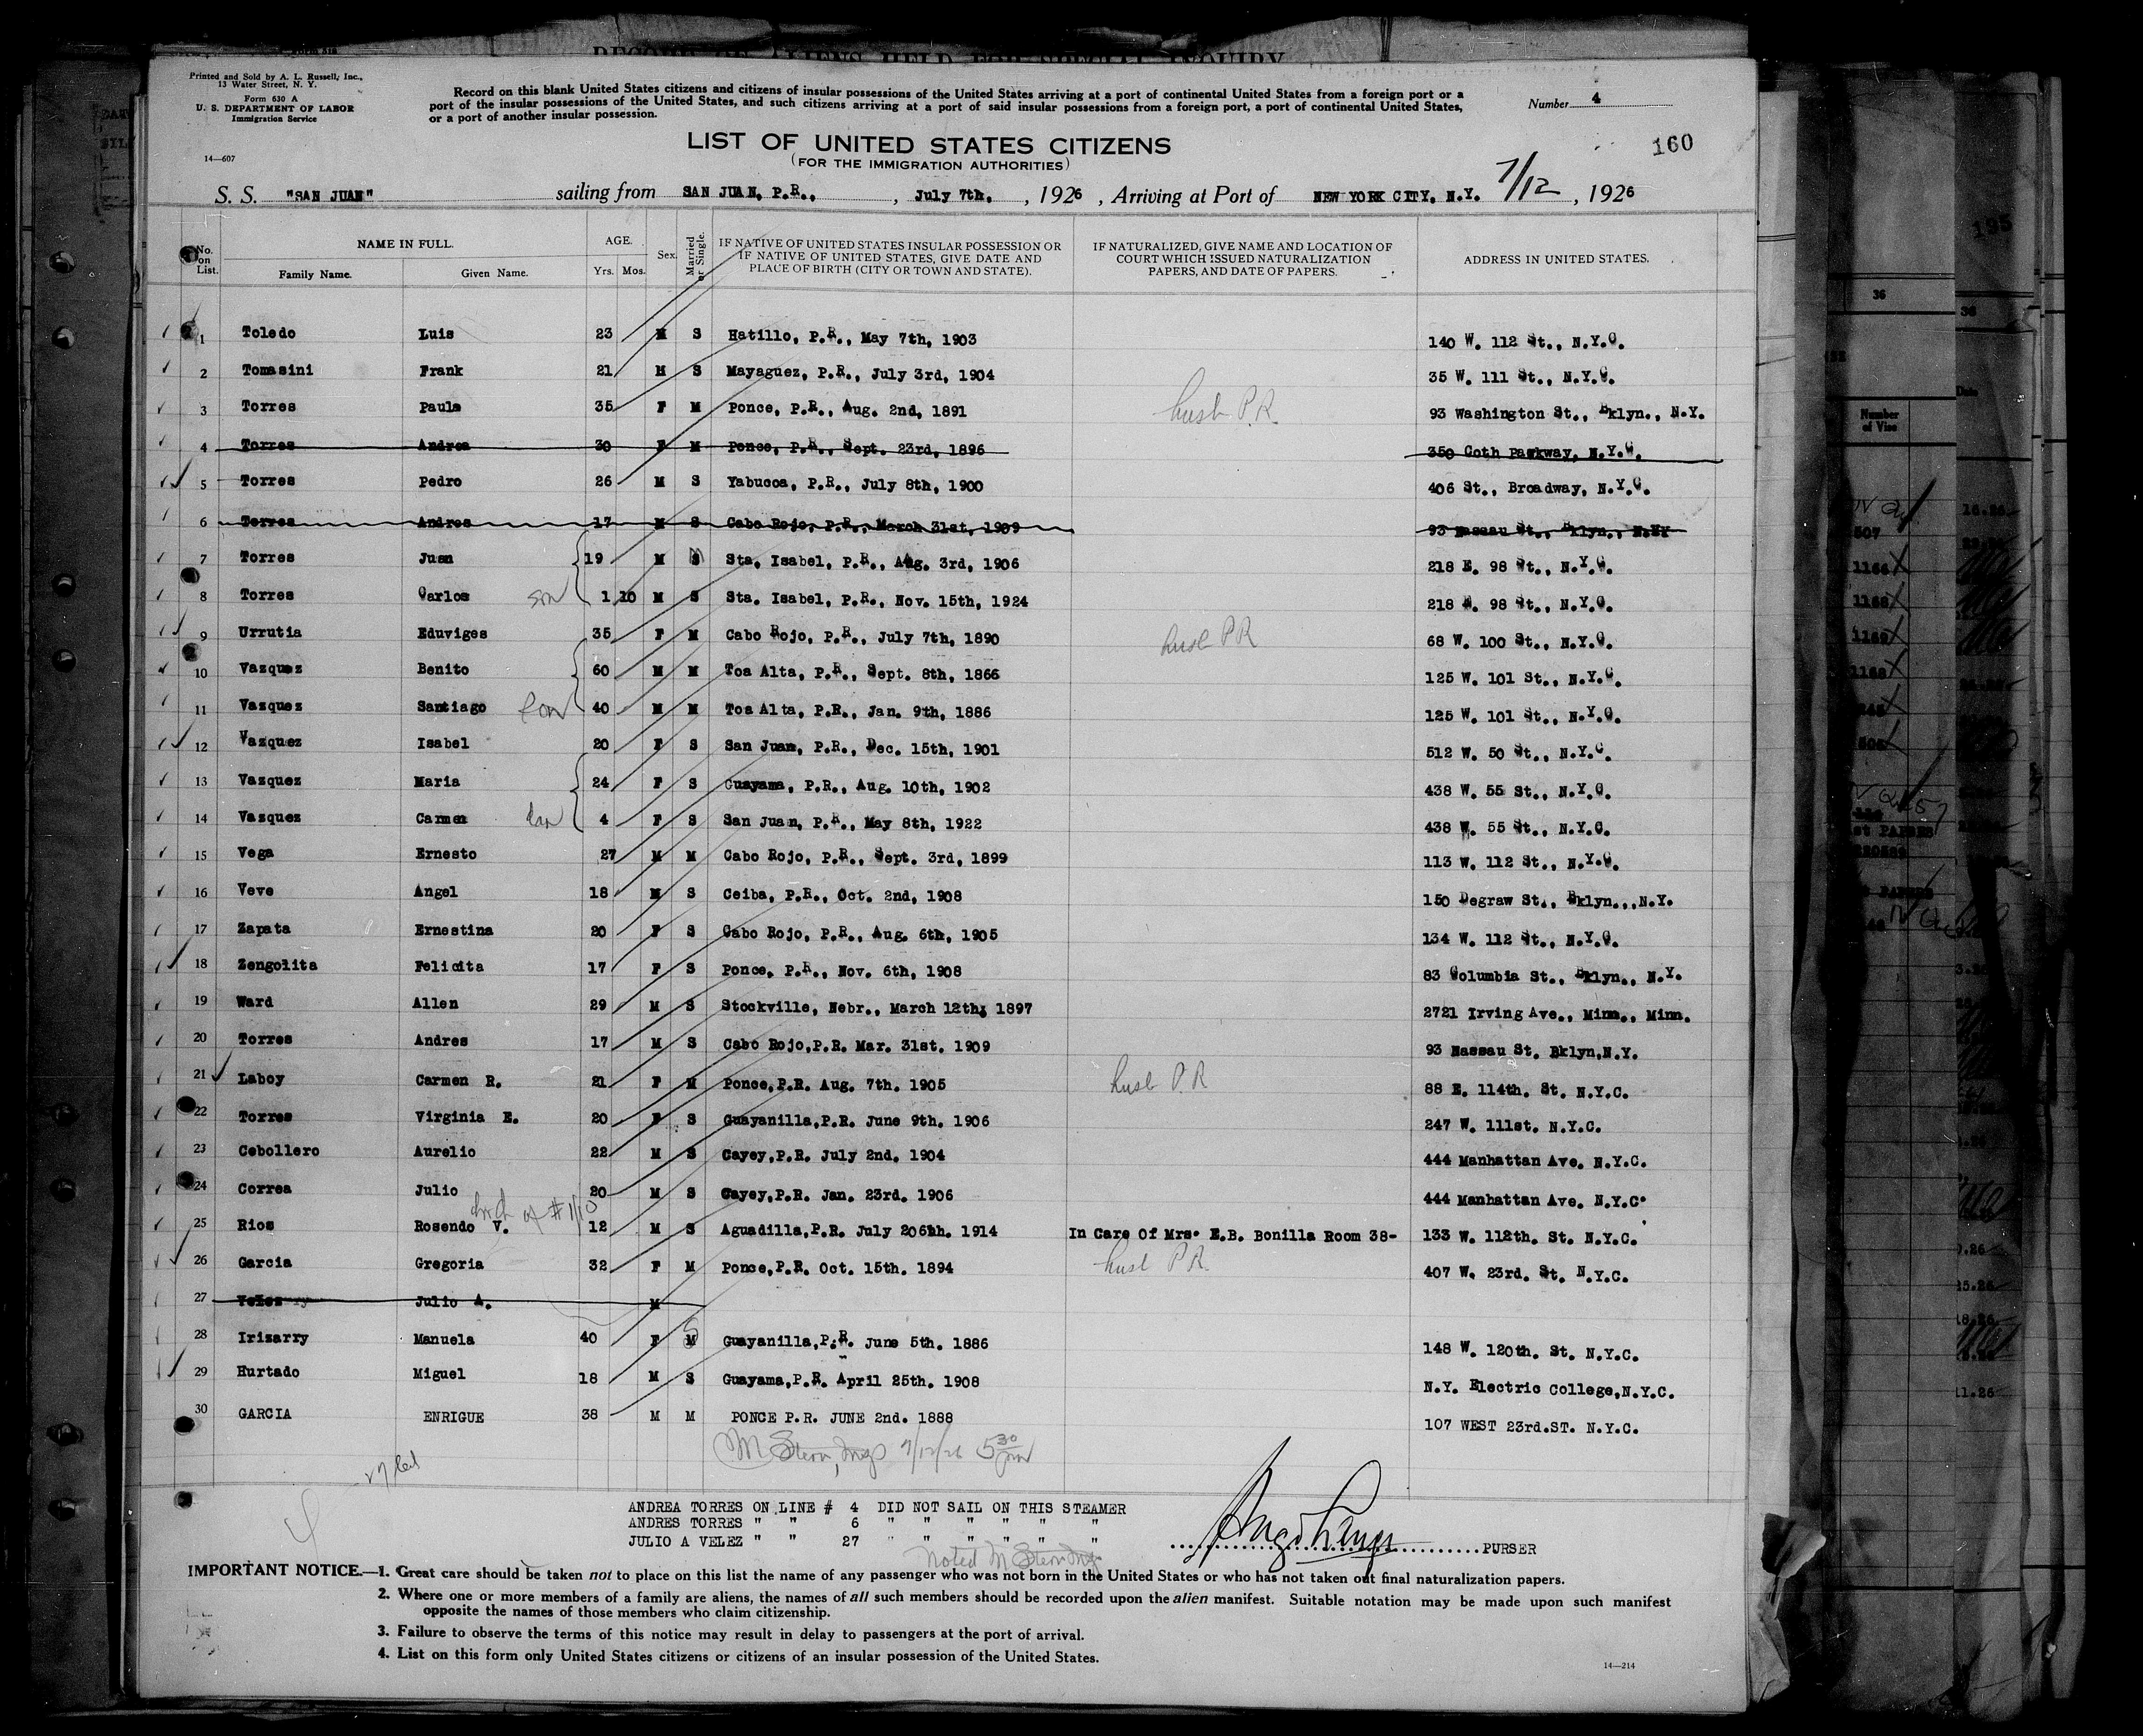 Printed and Sold by A. L. Russell, Inc.,
13 Water Street, N. Y.
Form 630 A
U. S. DEPARTMENT OF LABOR
Immigration Service
14—607
Record on this blank United States citizens and citizens of insular possessions of the United States arriving at a port of continental United States from a foreign port or a
port of the insular possessions of the United States, and such citizens arriving at a port of said insular possessions from a foreign port, a port of continental United States,
or a port of another insular possession.
Number 4
160
LIST OF UNITED STATES CITIZENS
(FOR THE IMMIGRATION AUTHORITIES)
S. S. "SAN JUAN" sailing from SAN JUAN, P.R., , July 7th, , 1926 , Arriving at Port of NEW YORK CITY, N.Y. 7/12 , 1926
No. on List. NAME IN FULL. Family Name. Given Name. AGE. Yrs. Mos. Sex. Married or Single. IF NATIVE OF UNITED STATES INSULAR POSSESSION OR IF NATIVE OF UNITED STATES, GIVE DATE AND PLACE OF BIRTH (CITY OR TOWN AND STATE). IF NATURALIZED, GIVE NAME AND LOCATION OF COURT WHICH ISSUED NATURALIZATION PAPERS, AND DATE OF PAPERS. ADDRESS IN UNITED STATES.
1 Toledo Luis 23 M S Hatillo, P.R., May 7th, 1903 140 W. 112 St., N.Y.C.
2 Tomasini Frank 21 M S Mayaguez, P.R., July 3rd, 1904 35 W. 111 St., N.Y.C.
3 Torres Paula 35 F M Ponce, P.R., Aug. 2nd, 1891 husb P.R. 93 Washington St., Bklyn., N.Y.
4 Torres Andrea 30 F M Ponce, P.R., Sept. 23rd, 1896 350 Goth Parkway, N.Y.C.
5 Torres Pedro 26 M S Yabucoa, P.R., July 8th, 1900 406 St., Broadway, N.Y.C.
6 Torres Andres 17 M S Cabo Rojo, P.R., March 31st, 1909 93 Nassau St., Bklyn., N.NY
7 Torres Juan 19 M S Sta. Isabel, P.R., Aug. 3rd, 1906 218 E. 98 St., N.Y.C.
8 Torres Carlos son 1 10 M S Sta. Isabel, P.R., Nov. 15th, 1924 218 E. 98 St., N.Y.C.
9 Urrutia Eduviges 35 F M Cabo Rojo, P.R., July 7th, 1890 husb PR 68 W. 100 St., N.Y.C.
10 Vazquez Benito 60 M M Toa Alta, P.R., Sept. 8th, 1866 125 W. 101 St., N.Y.C.
11 Vazquez Santiago son 40 M M Toa Alta, P.R., Jan. 9th, 1886 125 W. 101 St., N.Y.C.
12 Vazquez Isabel 20 F S San Juan, P.R., Dec. 15th, 1901 512 W. 50 St., N.Y.C.
13 Vazquez Maria 24 F S Guayama, P.R., Aug. 10th, 1902 438 W. 55 St., N.Y.C.
14 Vazquez Carmen dau 4 F S San Juan, P.R., May 8th, 1922 438 W. 55 St., N.Y.C.
15 Vega Ernesto 27 M M Cabo Rojo, P.R., Sept. 3rd, 1899 113 W. 112 St., N.Y.C.
16 Veve Angel 18 M S Ceiba, P.R., Oct. 2nd, 1908 150 Degraw St., Bklyn.,,N.Y.
17 Zapata Ernestina 20 F S Cabo Rojo, P.R., Aug. 6th, 1905 134 W. 112 St., N.Y.C.
18 Zengolita Felicita 17 F S Ponce, P.R., Nov. 6th, 1908 83 Columbia St., Bklyn., N.Y.
19 Ward Allen 29 M S Stockville, Nebr., March 12th, 1897 2721 Irving Ave., Minn., Minn.
20 Torres Andres 17 M S Cabo Rojo,P.R. Mar. 31st. 1909 93 Nassau St. Bklyn,N.Y.
21 Laboy Carmen R. 21 F M Ponce,P.R. Aug. 7th. 1905 husb P.R 88 E. 114th. St. N.Y.C.
22 Torres Virginia E. 20 F S Guayanilla,P.R. June 9th. 1906 247 W. 111st. N.Y.C.
23 Cebollero Aurelio 22 M S Cayey,P.R. July 2nd. 1904 444 Manhattan Ave. N.Y.C.
24 Correa Julio 20 M S Cayey,P.R. Jan. 23rd. 1906 444 Manhattan Ave. N.Y.C.
25 Rios Rosendo V. 12 M S Aguadilla,P.R. July 206hh. 1914 In Care Of Mrs. E.B. Bonilla Room 38- 133 W. 112th. St. N.Y.C.
26 Garcia Gregoria 32 F M Ponce,P.R. Oct. 15th. 1894 husb P.R. 407 W. 23rd. St. N.Y.C.
27 Velez Julio A. M
28 Irizarry Manuela 40 F M S Guayanilla,P.R. June 5th. 1886 148 W. 120th. St. N.Y.C.
29 Hurtado Miguel 18 M S Guayama,P.R. April 25th. 1908 N.Y. Electric College,N.Y.C.
30 GARCIA ENRIGUE 38 M M PONCE P.R. JUNE 2nd. 1888 107 WEST 23rd.ST. N.Y.C.
M Stern, Insp 7/12/26 5 30 pm
ANDREA TORRES ON LINE # 4 DID NOT SAIL ON THIS STEAMER
ANDRES TORRES " " 6 " " " " " "
JULIO A VELEZ " " 27 " " " " " "
PURSER
Noted M Stern Insp
IMPORTANT NOTICE.—1. Great care should be taken not to place on this list the name of any passenger who was not born in the United States or who has not taken out final naturalization papers.
2. Where one or more members of a family are aliens, the names of all such members should be recorded upon the alien manifest. Suitable notation may be made upon such manifest
opposite the names of those members who claim citizenship.
3. Failure to observe the terms of this notice may result in delay to passengers at the port of arrival.
4. List on this form only United States citizens or citizens of an insular possession of the United States.
14—214